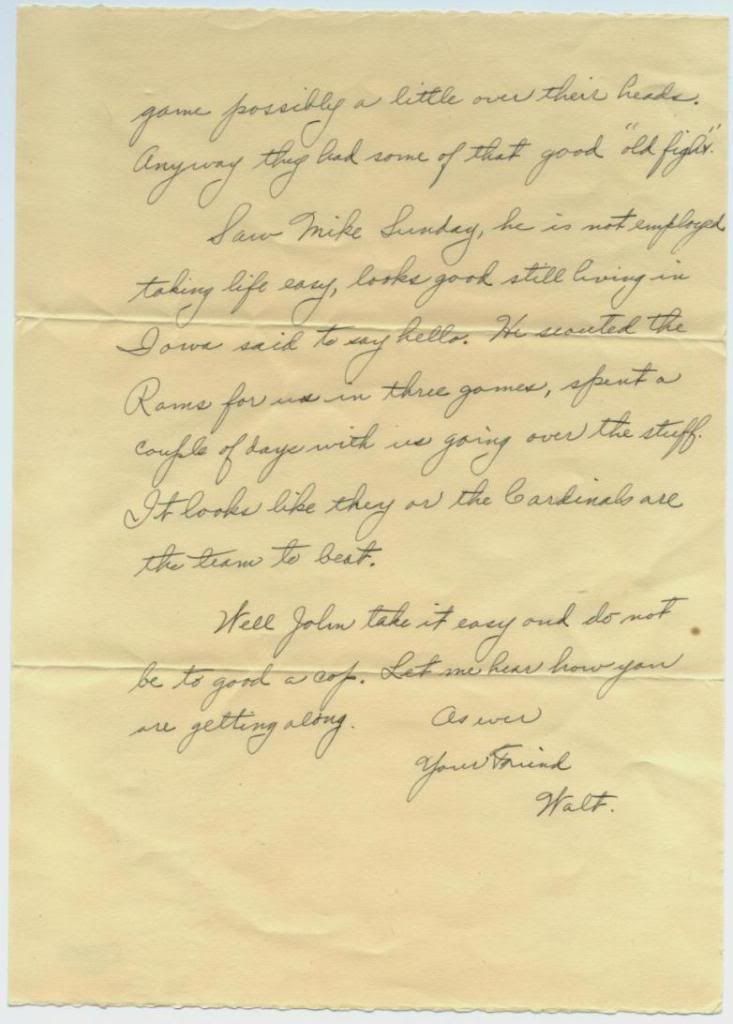 game possibly a little over their heads.
Anyway they had some of that good "old fight".
Saw Mike Sunday, he is not employed
taking life easy, looks good still living in
Iowa said to say hello. He scouted the
Rams for us in three games, spent a
couple of days with us going over the stuff.
It looks like they or the Cardinals are
the team to beat.
Well John take it easy and do not
be to good a cop. Let me hear how you
are getting along. As ever
Your Friend
Walt.